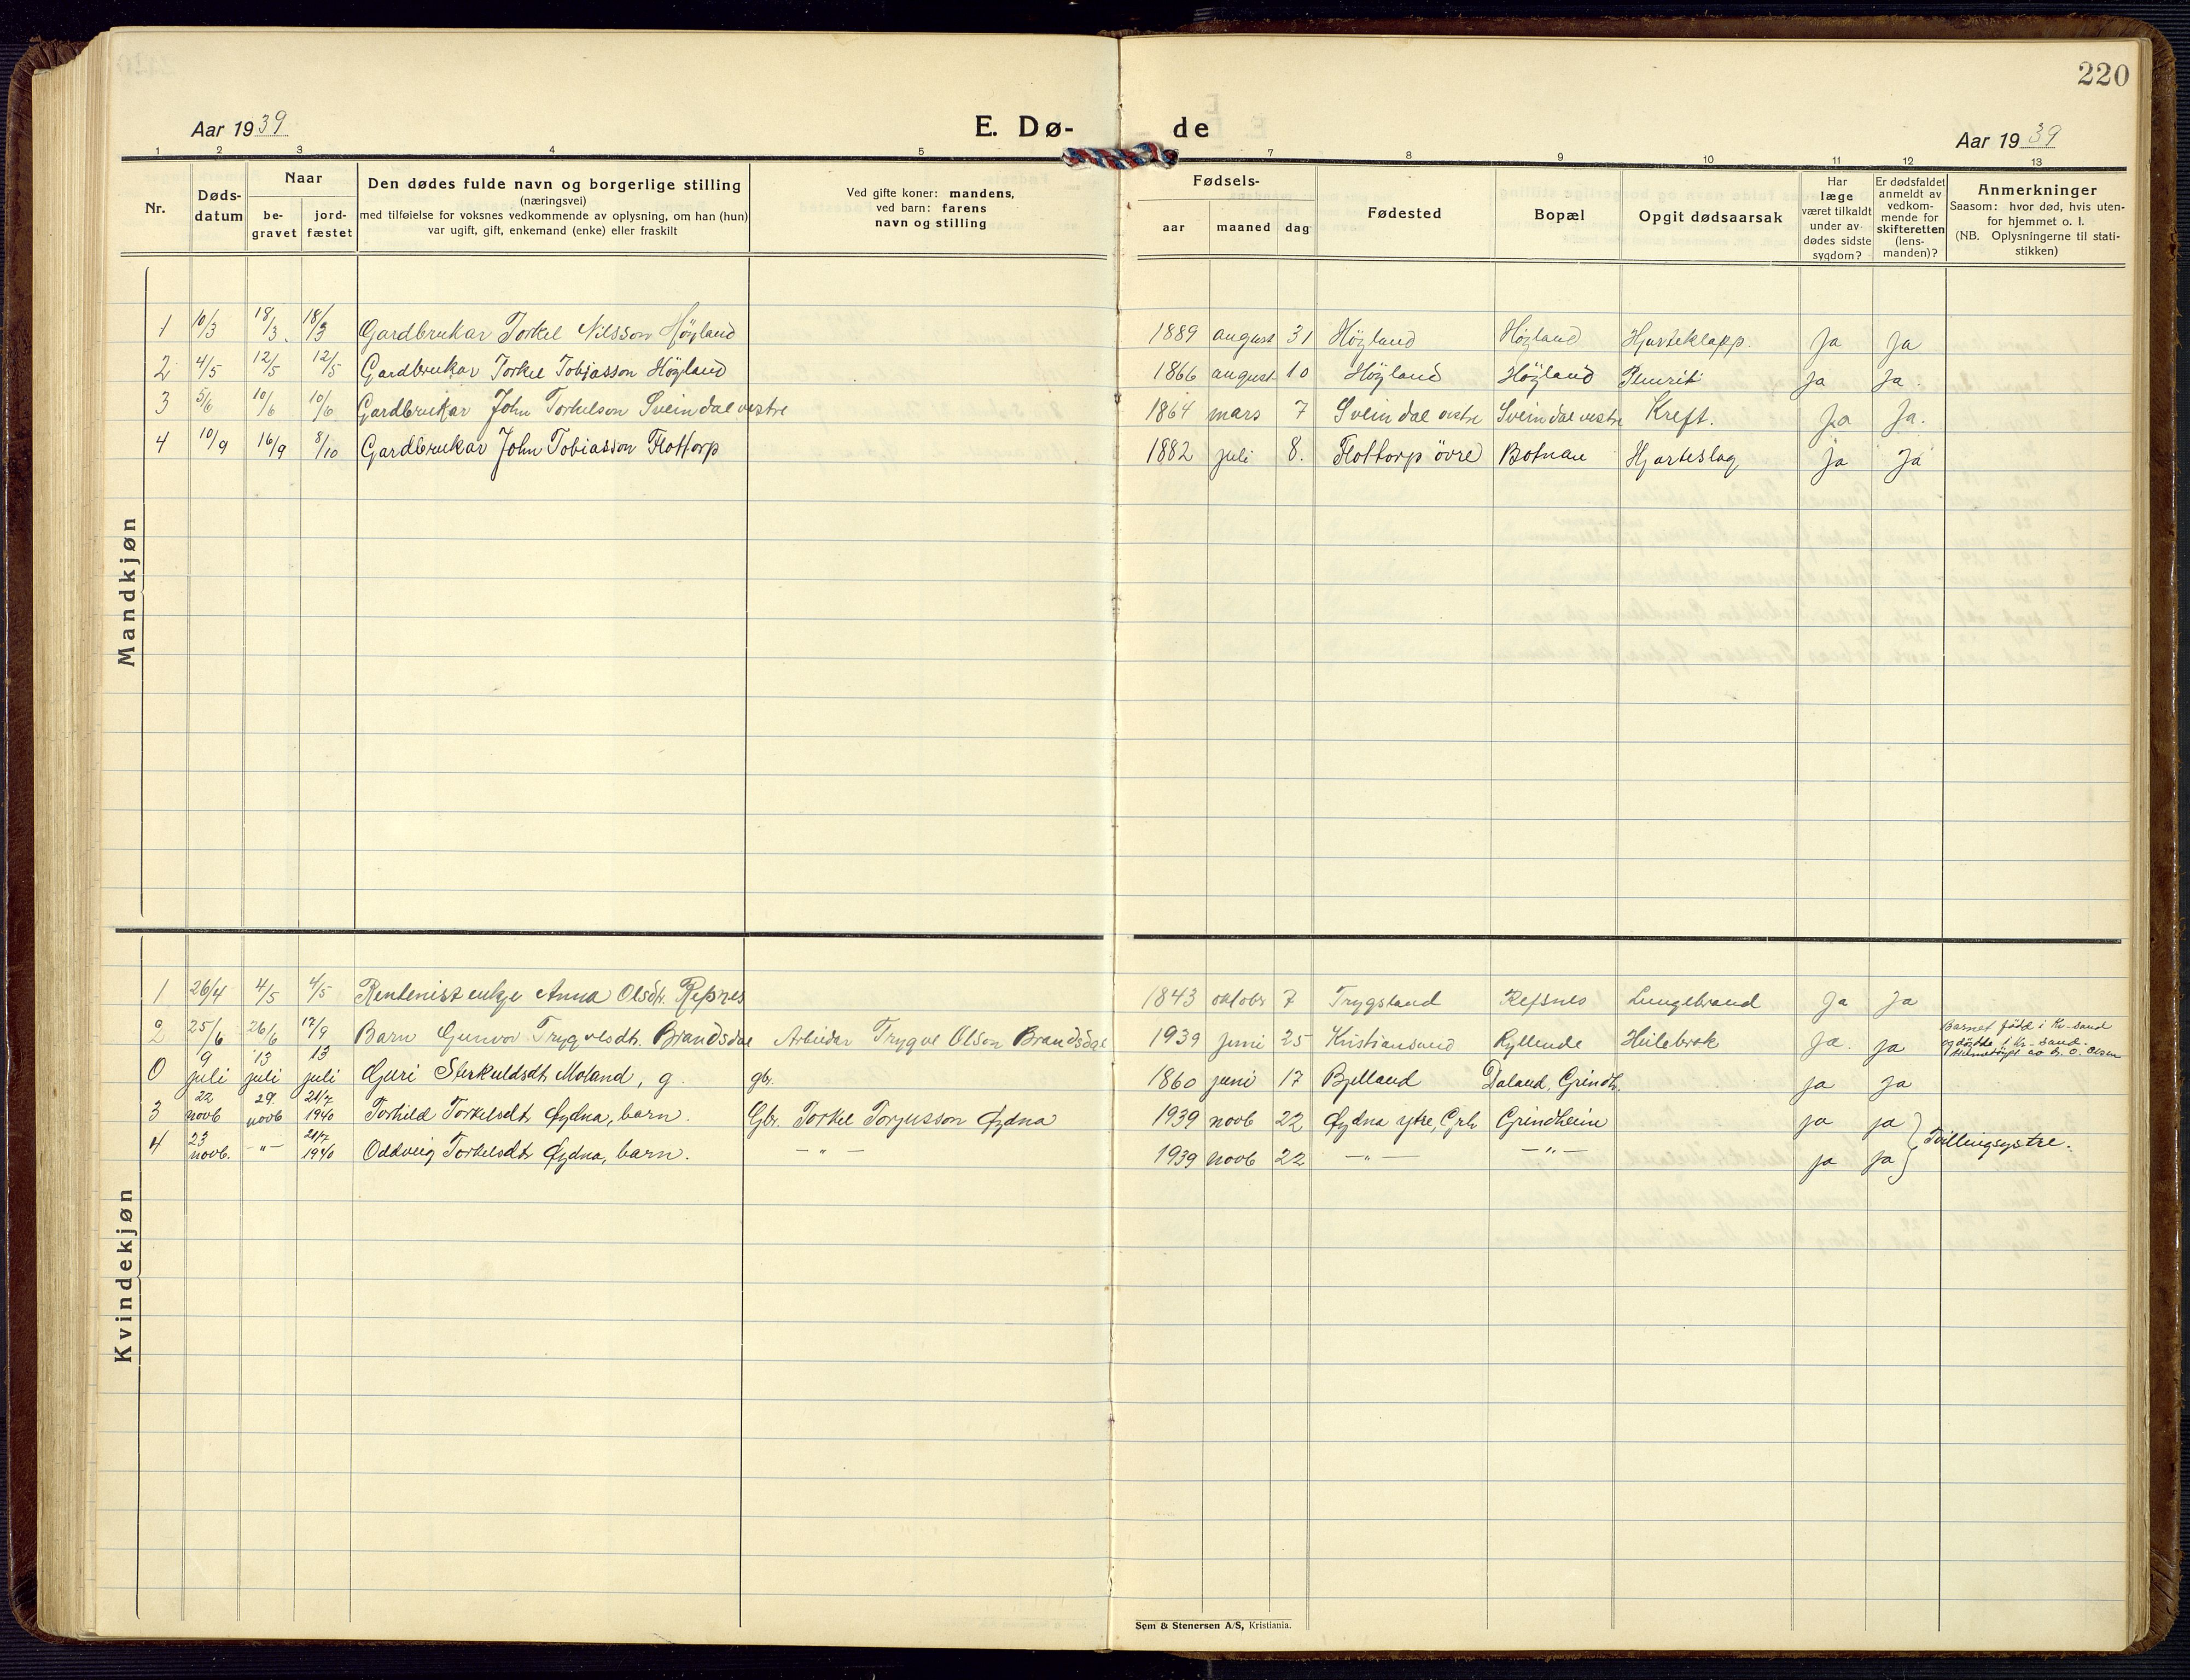 220
Aar 1939
E. Dø-
de
Aar 1939
1 2 3 4 5 7 8 9 10 11 12 13
Nr.
Døds-
datum
Naar
be-
gravet
jord-
fæstet
Den dødes fulde navn og borgerlige stilling
(næringsvei)
med tilføielse for voksnes vedkommende av oplysning, om han (hun)
var ugift, gift, enkemand (enke) eller fraskilt
Ved gifte koner: mandens,
ved barn: farens
navn og stilling
Fødsels-
aar maaned dag
Fødested
Bopæl
Opgit dødsaarsak
Har
læge
været tilkaldt
under av-
dødes sidste
sygdom?
Er dødsfaldet
anmeldt av
vedkom-
mende for
skifteretten
(lens-
manden)?
Anmerkninger
Saasom: hvor død, hvis uten-
for hjemmet o. l.
(NB. Oplysningerne til stati-
stikken)
Mandkjøn
1 10/3 18/3. 18/3 Gardbrukar Torkel Nilsson Höyland 1889 august 31 Höyland Höyland Hjarteklapp. Ja Ja
2 4/5 12/5 12/5 Gardbrukar Torkel Tobiasson Höyland 1866 august 10 Höyland Höyland Pleurit Ja Ja.
3 5/6 10/6 10/6 Gardbrukar John Torkelson Sveindal vestre 1864 mars 7 Sveindal vestre Sveindal vestre Kreft. Ja Ja.
4 10/9 16/9 8/10 Gardbrukar John Tobiasson Flottorp 1882 juli 8. Flottorp övre Botnan Hjarteslag Ja Ja
Kvindekjøn
1 26/4 4/5 4/5 Rentenist enkje Anna Olsdtr. Refsnes 1843 oktobr 7 Trygstand Refsnes Lungebrand Ja Ja
2 25/6 26/6 17/9 Barn Gunvor Trygvesdt. Brandsdal Arbeidar Trygve Olson Brandsdal 1939 juni 25 Kristiansand Kyllende Heilabrok Ja. Ja Barnet född i Kr-sand
og dödde i Kr-sand.
Heimedöypt av O. Olsen
0 9 juli 13 juli 13 juli Guri Sterkuldsdt Moland, g. gbr. 1860 juni 17 Bjelland Daland, Grindh. ja ja
3 22 novb 29. novb 21/7 1940 Torhild Torkelsdt Øydna, barn. Gbr. Torkel Torjusson Øydna 1939 novb 22 Øydna ytre, Grh Grindheim ja ja Tvillingsystre.
4 23 novb. -"- 21/7 1940 Oddveig Torkelsdt Øydna, barn. -"- 1939 novb 22 -"- -"- ja ja
Sem & Stenersen A/S, Kristiania.